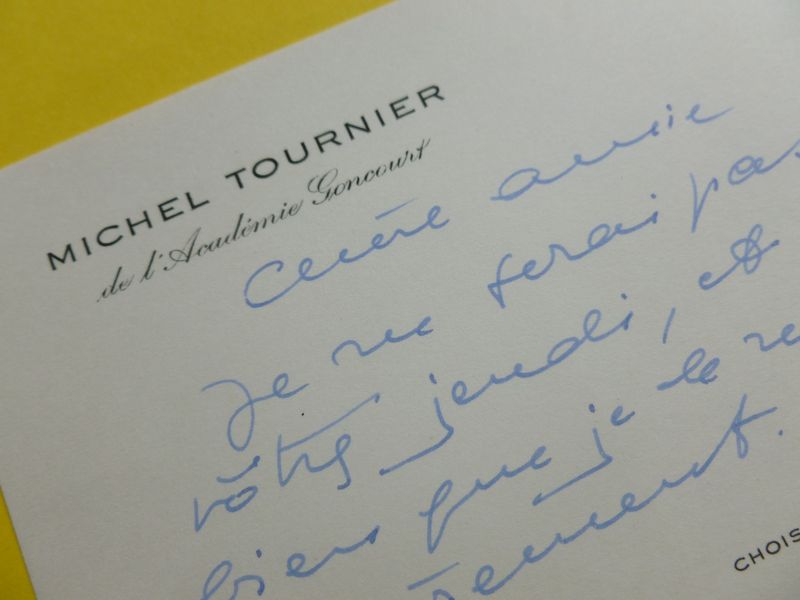 MICHEL TOURNIER
de l'Académie Goncourt
Chère amie
Je ne serai pas
vôtres jeudi, et
bien que je le re
CHOIS